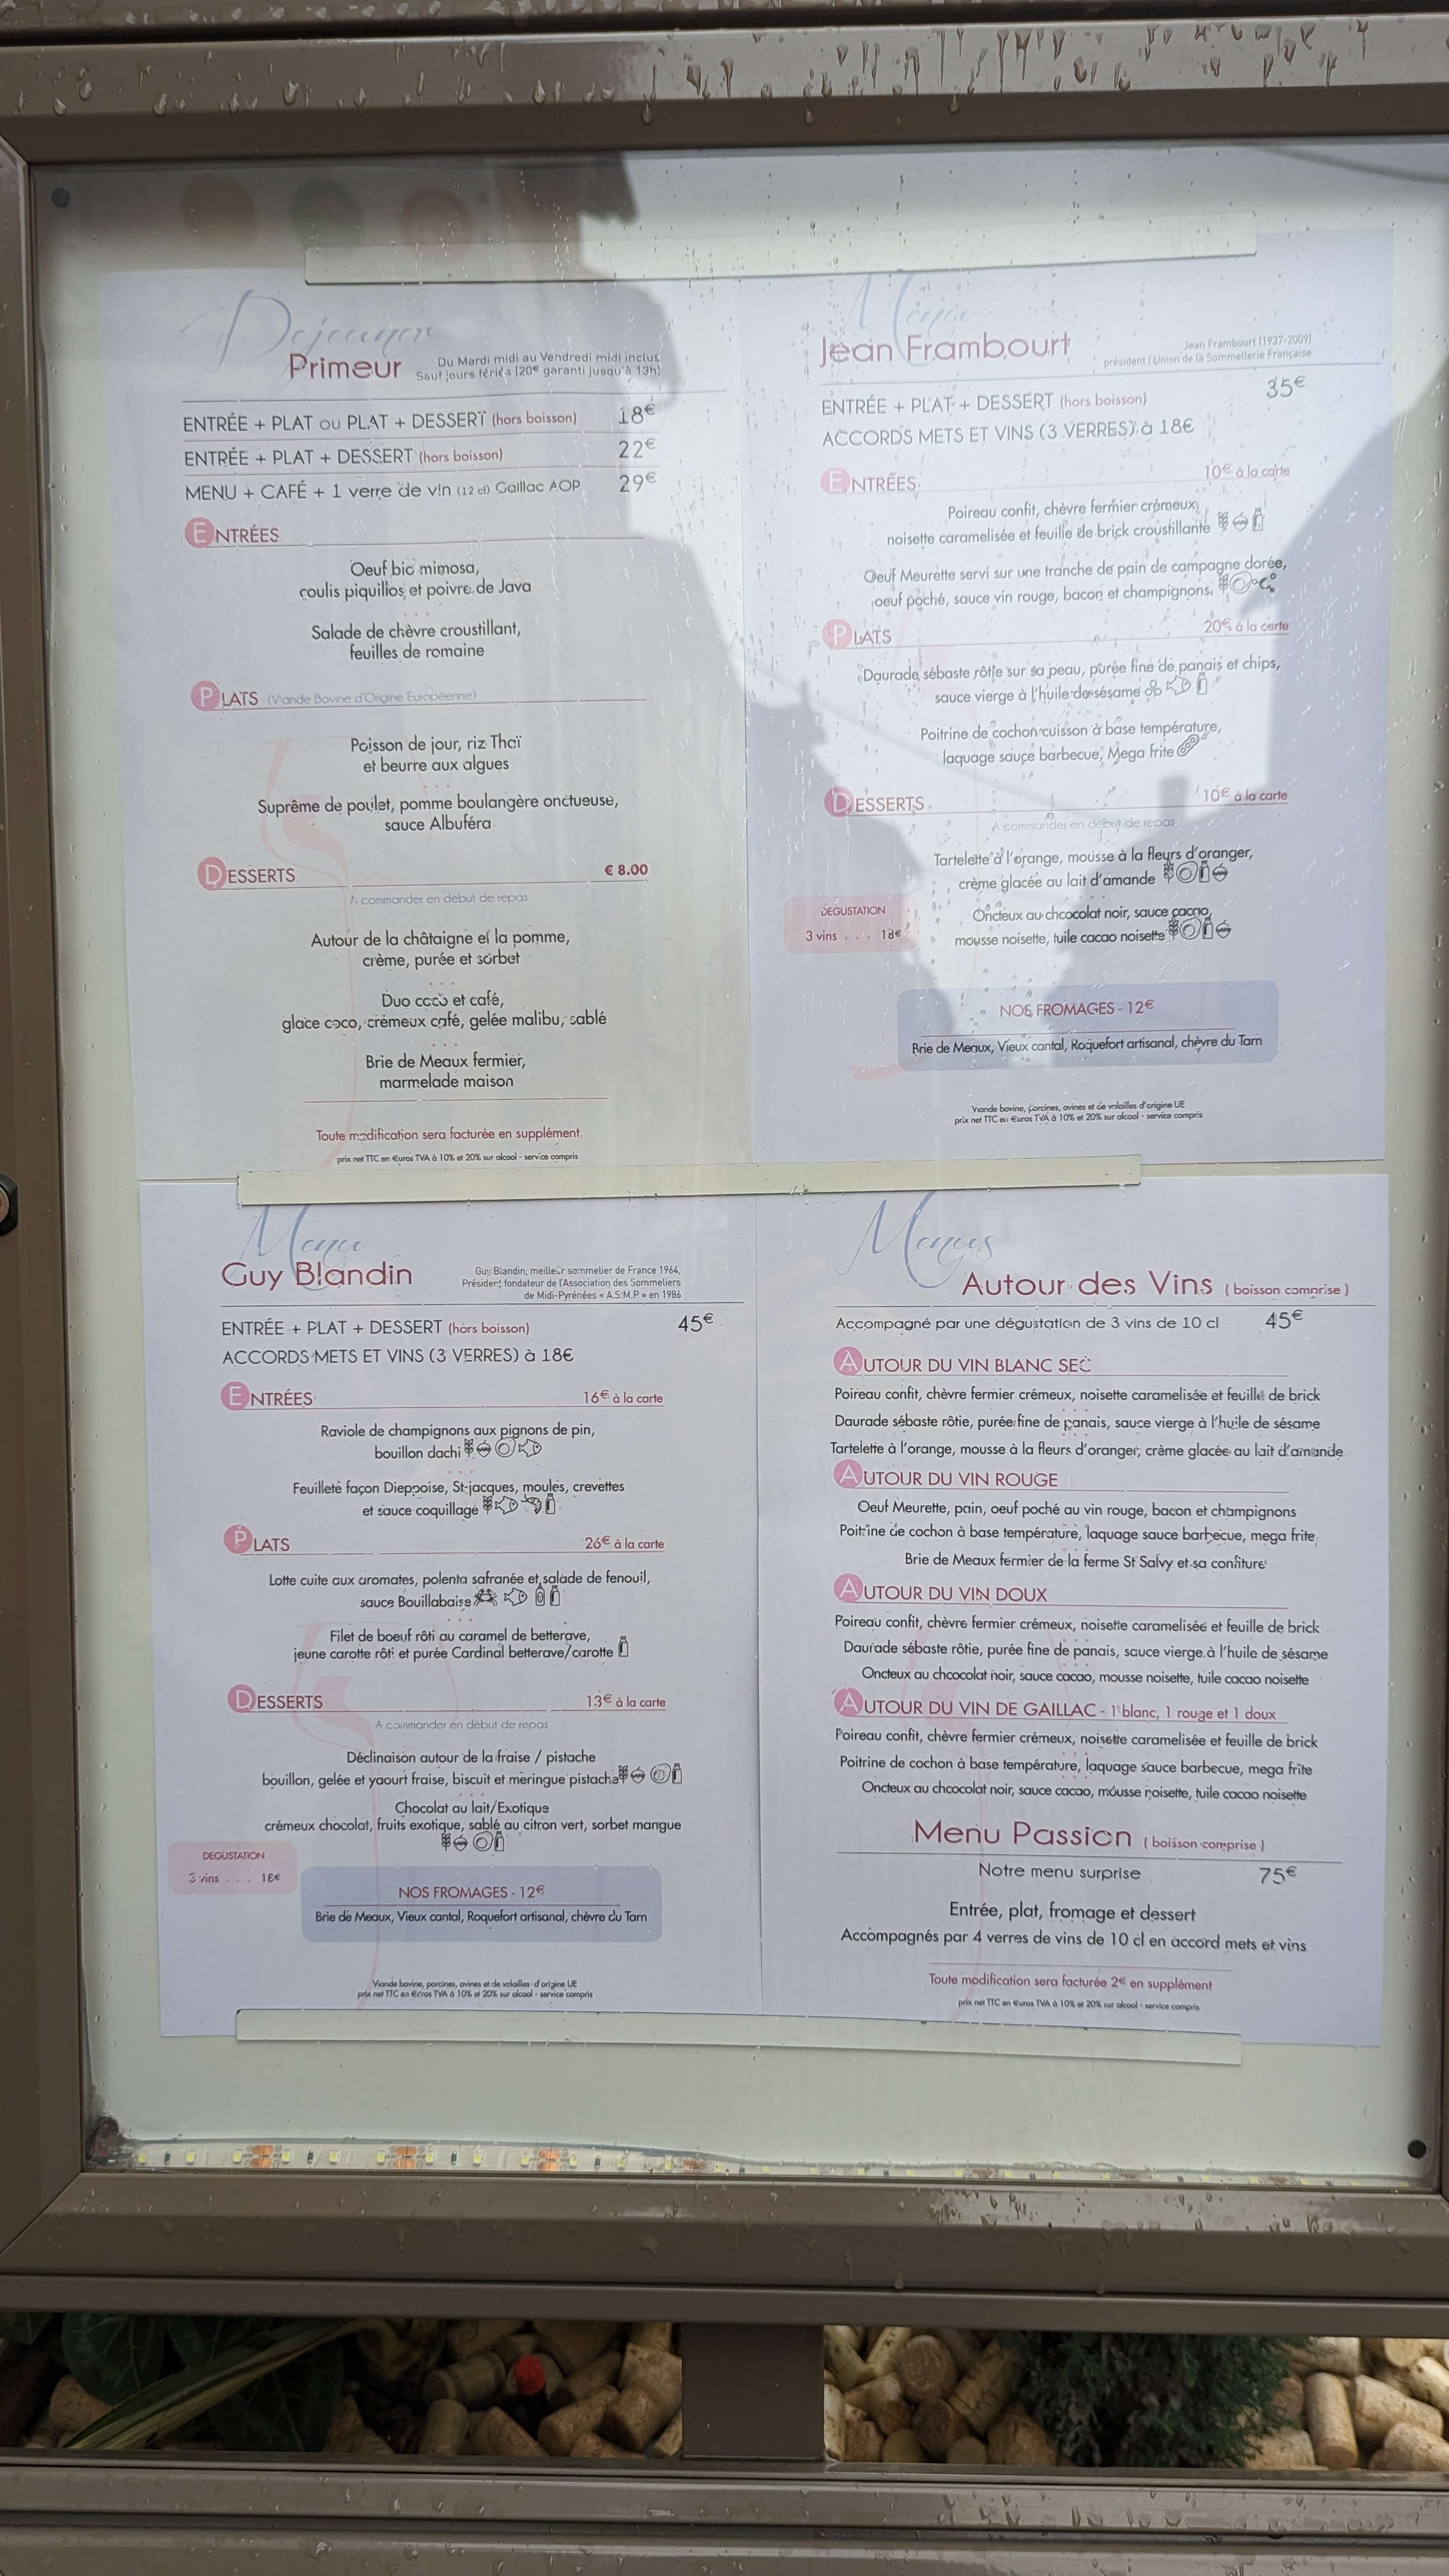 Dejeuner
Primeur
Du Mardi midi au Vendredi midi inclus
Sauf jours fériés (20€ garanti jusqu'à 13h)
ENTRÉE + PLAT OU PLAT + DESSERT (hors boisson) 18€
ENTRÉE + PLAT + DESSERT (hors boisson) 22€
MENU + CAFÉ + 1 verre de vin (12 cl) Gaillac AOP 29€
ENTRÉES
Oeuf bio mimosa,
coulis piquillos et poivre de Java
Salade de chèvre croustillant,
feuilles de romaine
PLATS (Viande Bovine d'Origine Européenne)
Poisson de jour, riz Thaï
et beurre aux algues
Suprême de poulet, pomme boulangère onctueuse,
sauce Albuféra
DESSERTS € 8.00
A commander en début de repas
Autour de la châtaigne et la pomme,
crème, purée et sorbet
Duo coco et café,
glace coco, crémeux café, gelée malibu, sablé
Brie de Meaux fermier,
marmelade maison
Toute modification sera facturée en supplément
prix net TTC en €uros TVA à 10% et 20% sur alcool - service compris
Menu
Jean Frambourt
Jean Frambourt (1937-2009)
président l'Union de la Sommellerie Française
ENTRÉE + PLAT + DESSERT (hors boisson) 35€
ACCORDS METS ET VINS (3 VERRES) à 18€
ENTRÉES 10€ à la carte
Poireau confit, chèvre fermier crémeux,
noisette caramelisée et feuille de brick croustillante
Oeuf Meurette servi sur une tranche de pain de campagne dorée,
oeuf poché, sauce vin rouge, bacon et champignons.
PLATS 20€ à la carte
Daurade sébaste rôtie sur sa peau, purée fine de panais et chips,
sauce vierge à l'huile de sésame
Poitrine de cochon cuisson à base température,
laquage sauce barbecue, Mega frite
DESSERTS 10€ à la carte
A commander en début de repas
Tartelette à l'orange, mousse à la fleurs d'oranger,
crème glacée au lait d'amande
Oncteux au chcocolat noir, sauce cacao,
mousse noisette, tuile cacao noisette
DEGUSTATION
3 vins . . . 18€
NOS FROMAGES - 12€
Brie de Meaux, Vieux cantal, Roquefort artisanal, chèvre du Tarn
Viande bovine, porcines, ovines et de volailles d'origine UE
prix net TTC en €uros TVA à 10% et 20% sur alcool - service compris
Menu
Guy Blandin
Guy Blandin, meilleur sommelier de France 1964,
Président fondateur de l'Association des Sommeliers
de Midi-Pyrénées « A.S.M.P » en 1986
ENTRÉE + PLAT + DESSERT (hors boisson) 45€
ACCORDS METS ET VINS (3 VERRES) à 18€
ENTRÉES 16€ à la carte
Raviole de champignons aux pignons de pin,
bouillon dachi
Feuilleté façon Dieppoise, St-jacques, moules, crevettes
et sauce coquillage
PLATS 26€ à la carte
Lotte cuite aux aromates, polenta safranée et salade de fenouil,
sauce Bouillabaise
Filet de boeuf rôti au caramel de betterave,
jeune carotte rôti et purée Cardinal betterave/carotte
DESSERTS 13€ à la carte
A commander en début de repas
Déclinaison autour de la fraise / pistache
bouillon, gelée et yaourt fraise, biscuit et meringue pistache
Chocolat au lait/Exotique
crémeux chocolat, fruits exotique, sablé au citron vert, sorbet mangue
DEGUSTATION
3 vins . . . 18€
NOS FROMAGES - 12€
Brie de Meaux, Vieux cantal, Roquefort artisanal, chèvre du Tarn
Viande bovine, porcines, ovines et de volailles d'origine UE
prix net TTC en €uros TVA à 10% et 20% sur alcool - service compris
Menus
Autour des Vins ( boisson comprise )
Accompagné par une dégustation de 3 vins de 10 cl 45€
AUTOUR DU VIN BLANC SEC
Poireau confit, chèvre fermier crémeux, noisette caramelisée et feuille de brick
Daurade sébaste rôtie, purée fine de panais, sauce vierge à l'huile de sésame
Tartelette à l'orange, mousse à la fleurs d'oranger, crème glacée au lait d'amande
AUTOUR DU VIN ROUGE
Oeuf Meurette, pain, oeuf poché au vin rouge, bacon et champignons
Poitrine de cochon à base température, laquage sauce barbecue, mega frite
Brie de Meaux fermier de la ferme St Salvy et sa confiture
AUTOUR DU VIN DOUX
Poireau confit, chèvre fermier crémeux, noisette caramelisée et feuille de brick
Daurade sébaste rôtie, purée fine de panais, sauce vierge à l'huile de sésame
Oncteux au chcocolat noir, sauce cacao, mousse noisette, tuile cacao noisette
AUTOUR DU VIN DE GAILLAC - 1 blanc, 1 rouge et 1 doux
Poireau confit, chèvre fermier crémeux, noisette caramelisée et feuille de brick
Poitrine de cochon à base température, laquage sauce barbecue, mega frite
Oncteux au chcocolat noir, sauce cacao, mousse noisette, tuile cacao noisette
Menu Passion ( boisson comprise )
Notre menu surprise 75€
Entrée, plat, fromage et dessert
Accompagnés par 4 verres de vins de 10 cl en accord mets et vins
Toute modification sera facturée 2€ en supplément
prix net TTC en €uros TVA à 10% et 20% sur alcool - service compris